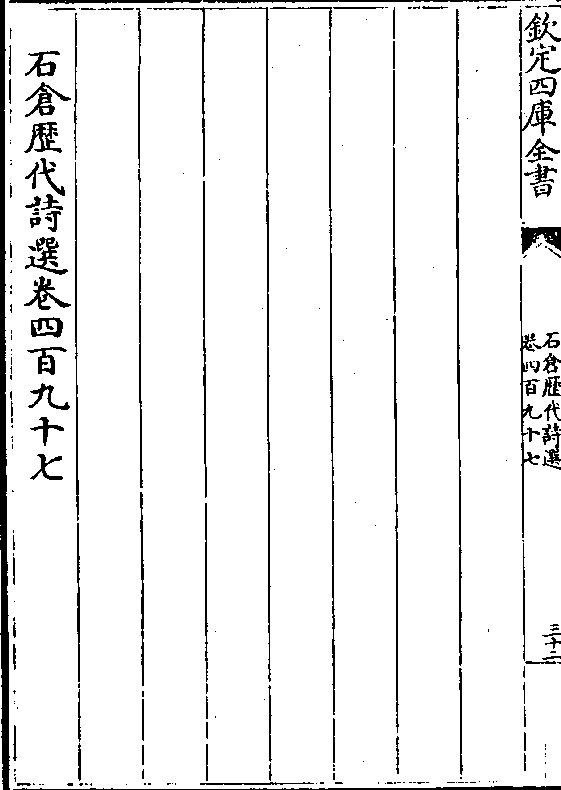 欽定四庫全書
石倉歷代詩選
卷四百九十七
三十二
石倉歷代詩選卷四百九十七